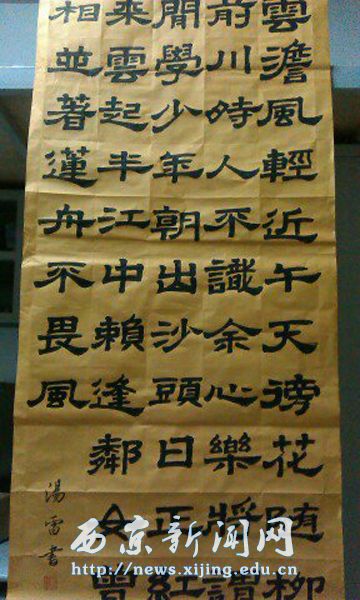 雲澹風輕近午天傍花随柳
前川時人不識余心樂將謂
閒學少年朝出沙頭日正紅
来雲起半江中賴逢鄰女曾
相並著蓮舟不畏風
湯雷書
西京新闻网
http://news.xijing.edu.cn